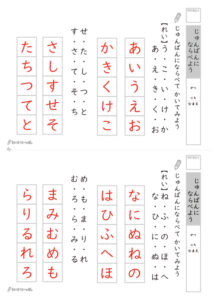 じゅんばんに
ならべよう
なまえ
じゅんばんにならべて かいてみよう
【れい】う・こ・い・け・か
あ・え・き・く・お
あいうえお
かきくけこ
せ・た・し・つ・と
す・さ・て・そ・ち
さしすせそ
たちつてと
じゅんばんに
ならべよう
なまえ
じゅんばんにならべて かいてみよう
【れい】ね・ふ・の・ほ・へ
な・ひ・に・ぬ・は
なにぬねの
はひふへほ
め・も・ま・り・れ
む・ろ・ら・み・る
まみむめも
らりるれろ